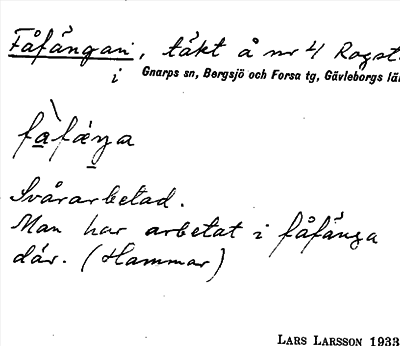 Fåfängan, täkt å nr 4 Rogst.
i Gnarps sn, Bergsjö och Forsa tg, Gävleborgs län
fàfäŋa
Svårarbetad.
Man har arbetat i fåfänga
där. (Hammar)
LARS LARSSON 1933